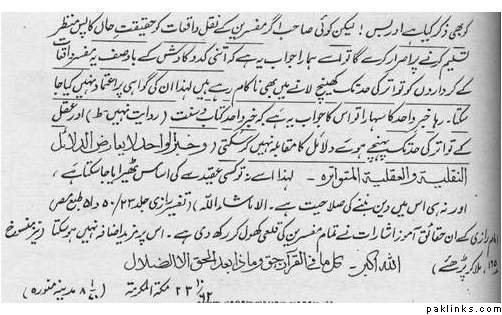 کو بھی ذکر کیا ہے اور بس! لیکن کوئی صاحب اگر مفسرین کے نقل واقعات کو حقیقت حال کا پس منظر
تسلیم کرنے پر اصرار کرے گا تو اسے ہمارا جواب یہ ہے کہ اتنی کدو کاوش کے باوصف یہ مفسر واقعات
کے کرداروں کو تواتر کی حد تک کھینچ لانے میں بھی ناکام رہے ہیں لہٰذا ان کی گواہی پر اعتماد نہیں کیا جا
سکتا۔ رہا خبر واحد کا سہارا تو اس کا جواب یہ ہے کہ خبر واحد کتاب و سنت (روایت نہیں ط) اور عقل
کے تواتر کی حد تک پہنچے ہوئے دلائل کا مقابلہ نہیں کر سکتی (وخبر الواحد لا یعارض الدلائل
النقلیۃ والعقلیۃ المتواترہ۔ لہٰذا اسے نہ تو کسی عقیدے کی اساس ٹھیرایا جا سکتا ہے،
اور نہ ہی اس میں دین بننے کی صلاحیت ہے۔ الا ماشاء اللہ) (تفسیر رازی جلد ۲۳/۵۰ طبع مصر
امام رازی کے ان حقائق آموز اشارات نے تمام مفسرین کی قلعی کھول کر رکھ دی ہے۔ اس پر مزید اضافہ نہیں ہو سکتا (نیز منسوخ
ملا کر پڑھئے) اللہ اکبر۔ کل ما فی القرآن حق وماذا بعد الحق الا الضلال
مکۃ المکرمۃ مدینہ منورہ)
paklinks.com